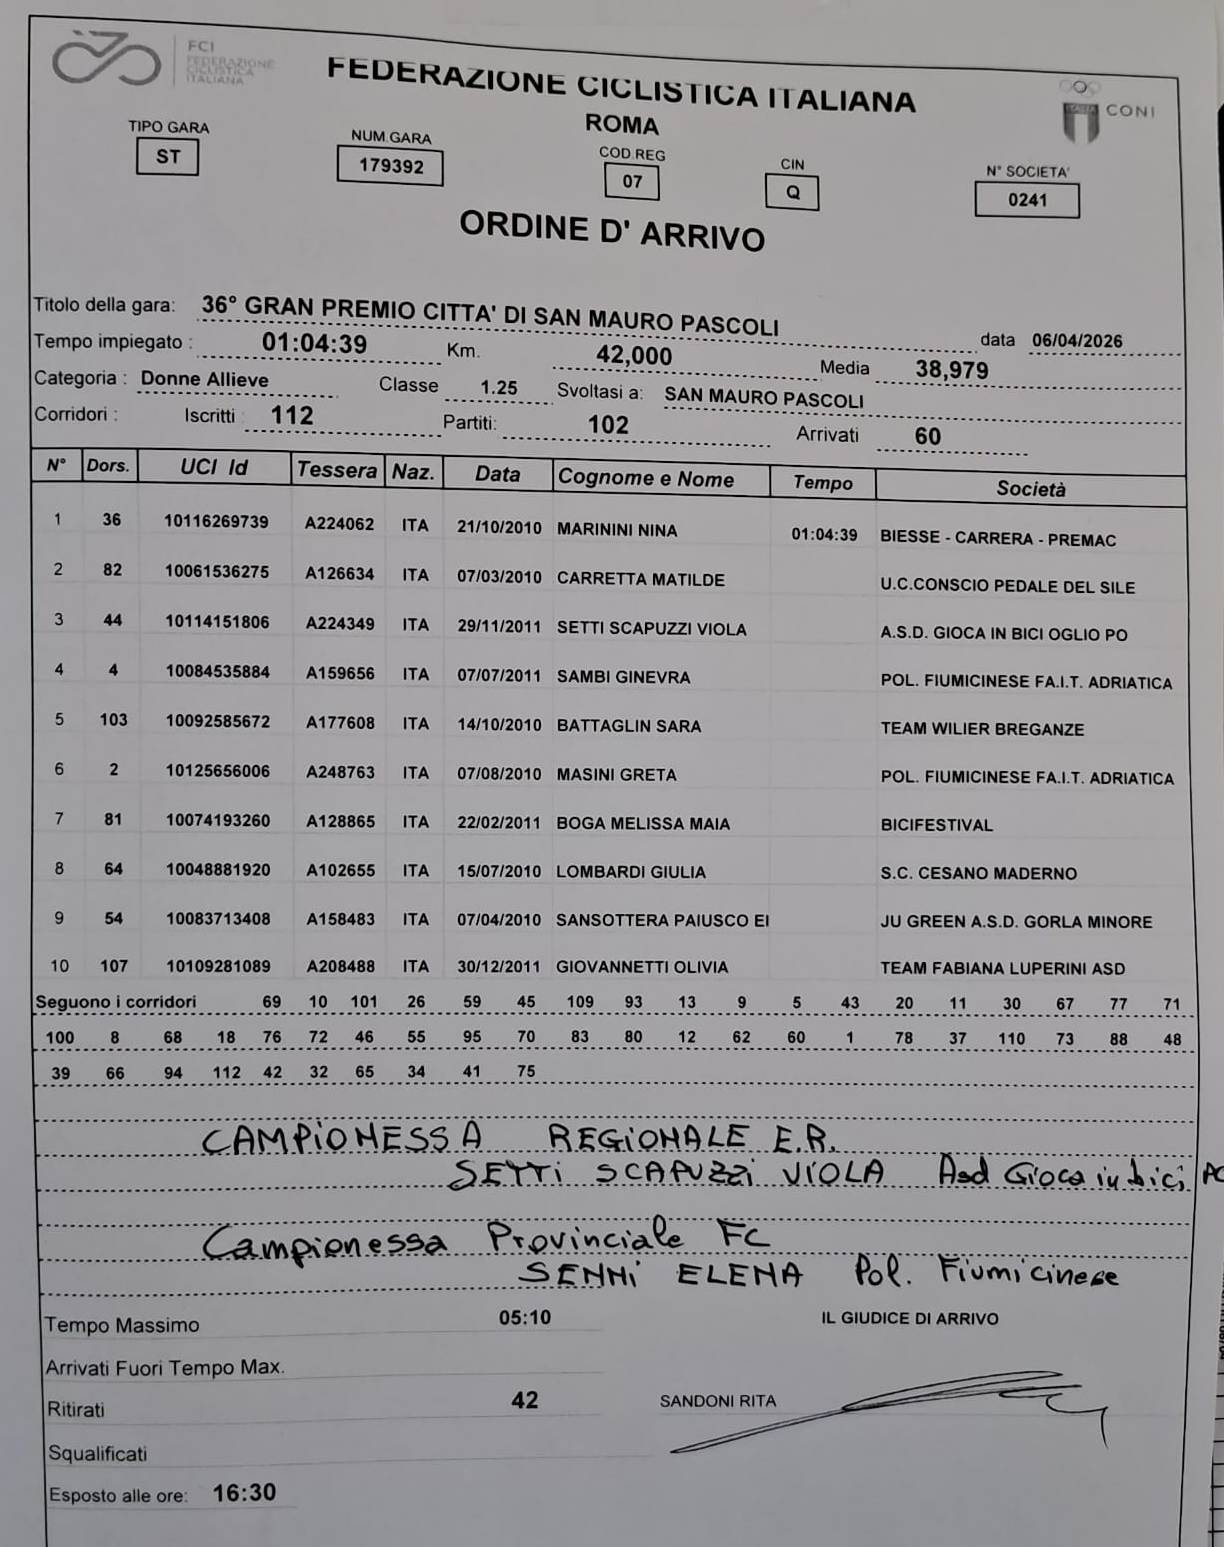 FCI
FEDERAZIONE
CICLISTICA
ITALIANA
FEDERAZIONE CICLISTICA ITALIANA
ROMA
ITALIA
CONI
TIPO GARA NUM.GARA COD.REG CIN N° SOCIETA'
ST 179392 07 Q 0241
ORDINE D' ARRIVO
Titolo della gara: 36° GRAN PREMIO CITTA' DI SAN MAURO PASCOLI data 06/04/2026
Tempo impiegato : 01:04:39 Km. 42,000 Media 38,979
Categoria : Donne Allieve Classe 1.25 Svoltasi a: SAN MAURO PASCOLI
Corridori : Iscritti : 112 Partiti: 102 Arrivati 60
N° Dors. UCI Id Tessera Naz. Data Cognome e Nome Tempo Società
1 36 10116269739 A224062 ITA 21/10/2010 MARININI NINA 01:04:39 BIESSE - CARRERA - PREMAC
2 82 10061536275 A126634 ITA 07/03/2010 CARRETTA MATILDE U.C.CONSCIO PEDALE DEL SILE
3 44 10114151806 A224349 ITA 29/11/2011 SETTI SCAPUZZI VIOLA A.S.D. GIOCA IN BICI OGLIO PO
4 4 10084535884 A159656 ITA 07/07/2011 SAMBI GINEVRA POL. FIUMICINESE FA.I.T. ADRIATICA
5 103 10092585672 A177608 ITA 14/10/2010 BATTAGLIN SARA TEAM WILIER BREGANZE
6 2 10125656006 A248763 ITA 07/08/2010 MASINI GRETA POL. FIUMICINESE FA.I.T. ADRIATICA
7 81 10074193260 A128865 ITA 22/02/2011 BOGA MELISSA MAIA BICIFESTIVAL
8 64 10048881920 A102655 ITA 15/07/2010 LOMBARDI GIULIA S.C. CESANO MADERNO
9 54 10083713408 A158483 ITA 07/04/2010 SANSOTTERA PAIUSCO EI JU GREEN A.S.D. GORLA MINORE
10 107 10109281089 A208488 ITA 30/12/2011 GIOVANNETTI OLIVIA TEAM FABIANA LUPERINI ASD
Seguono i corridori 69 10 101 26 59 45 109 93 13 9 5 43 20 11 30 67 77 71
100 8 68 18 76 72 46 55 95 70 83 80 12 62 60 1 78 37 110 73 88 48
39 66 94 112 42 32 65 34 41 75
CAMPIONESSA REGIONALE E.R.
SETTI SCAPUZZI VIOLA Asd Gioca in bici
Campionessa Provinciale FC
SENNI ELENA Pol. Fiumicinese
Tempo Massimo 05:10 IL GIUDICE DI ARRIVO
Arrivati Fuori Tempo Max.
Ritirati 42 SANDONI RITA
Squalificati
Esposto alle ore: 16:30